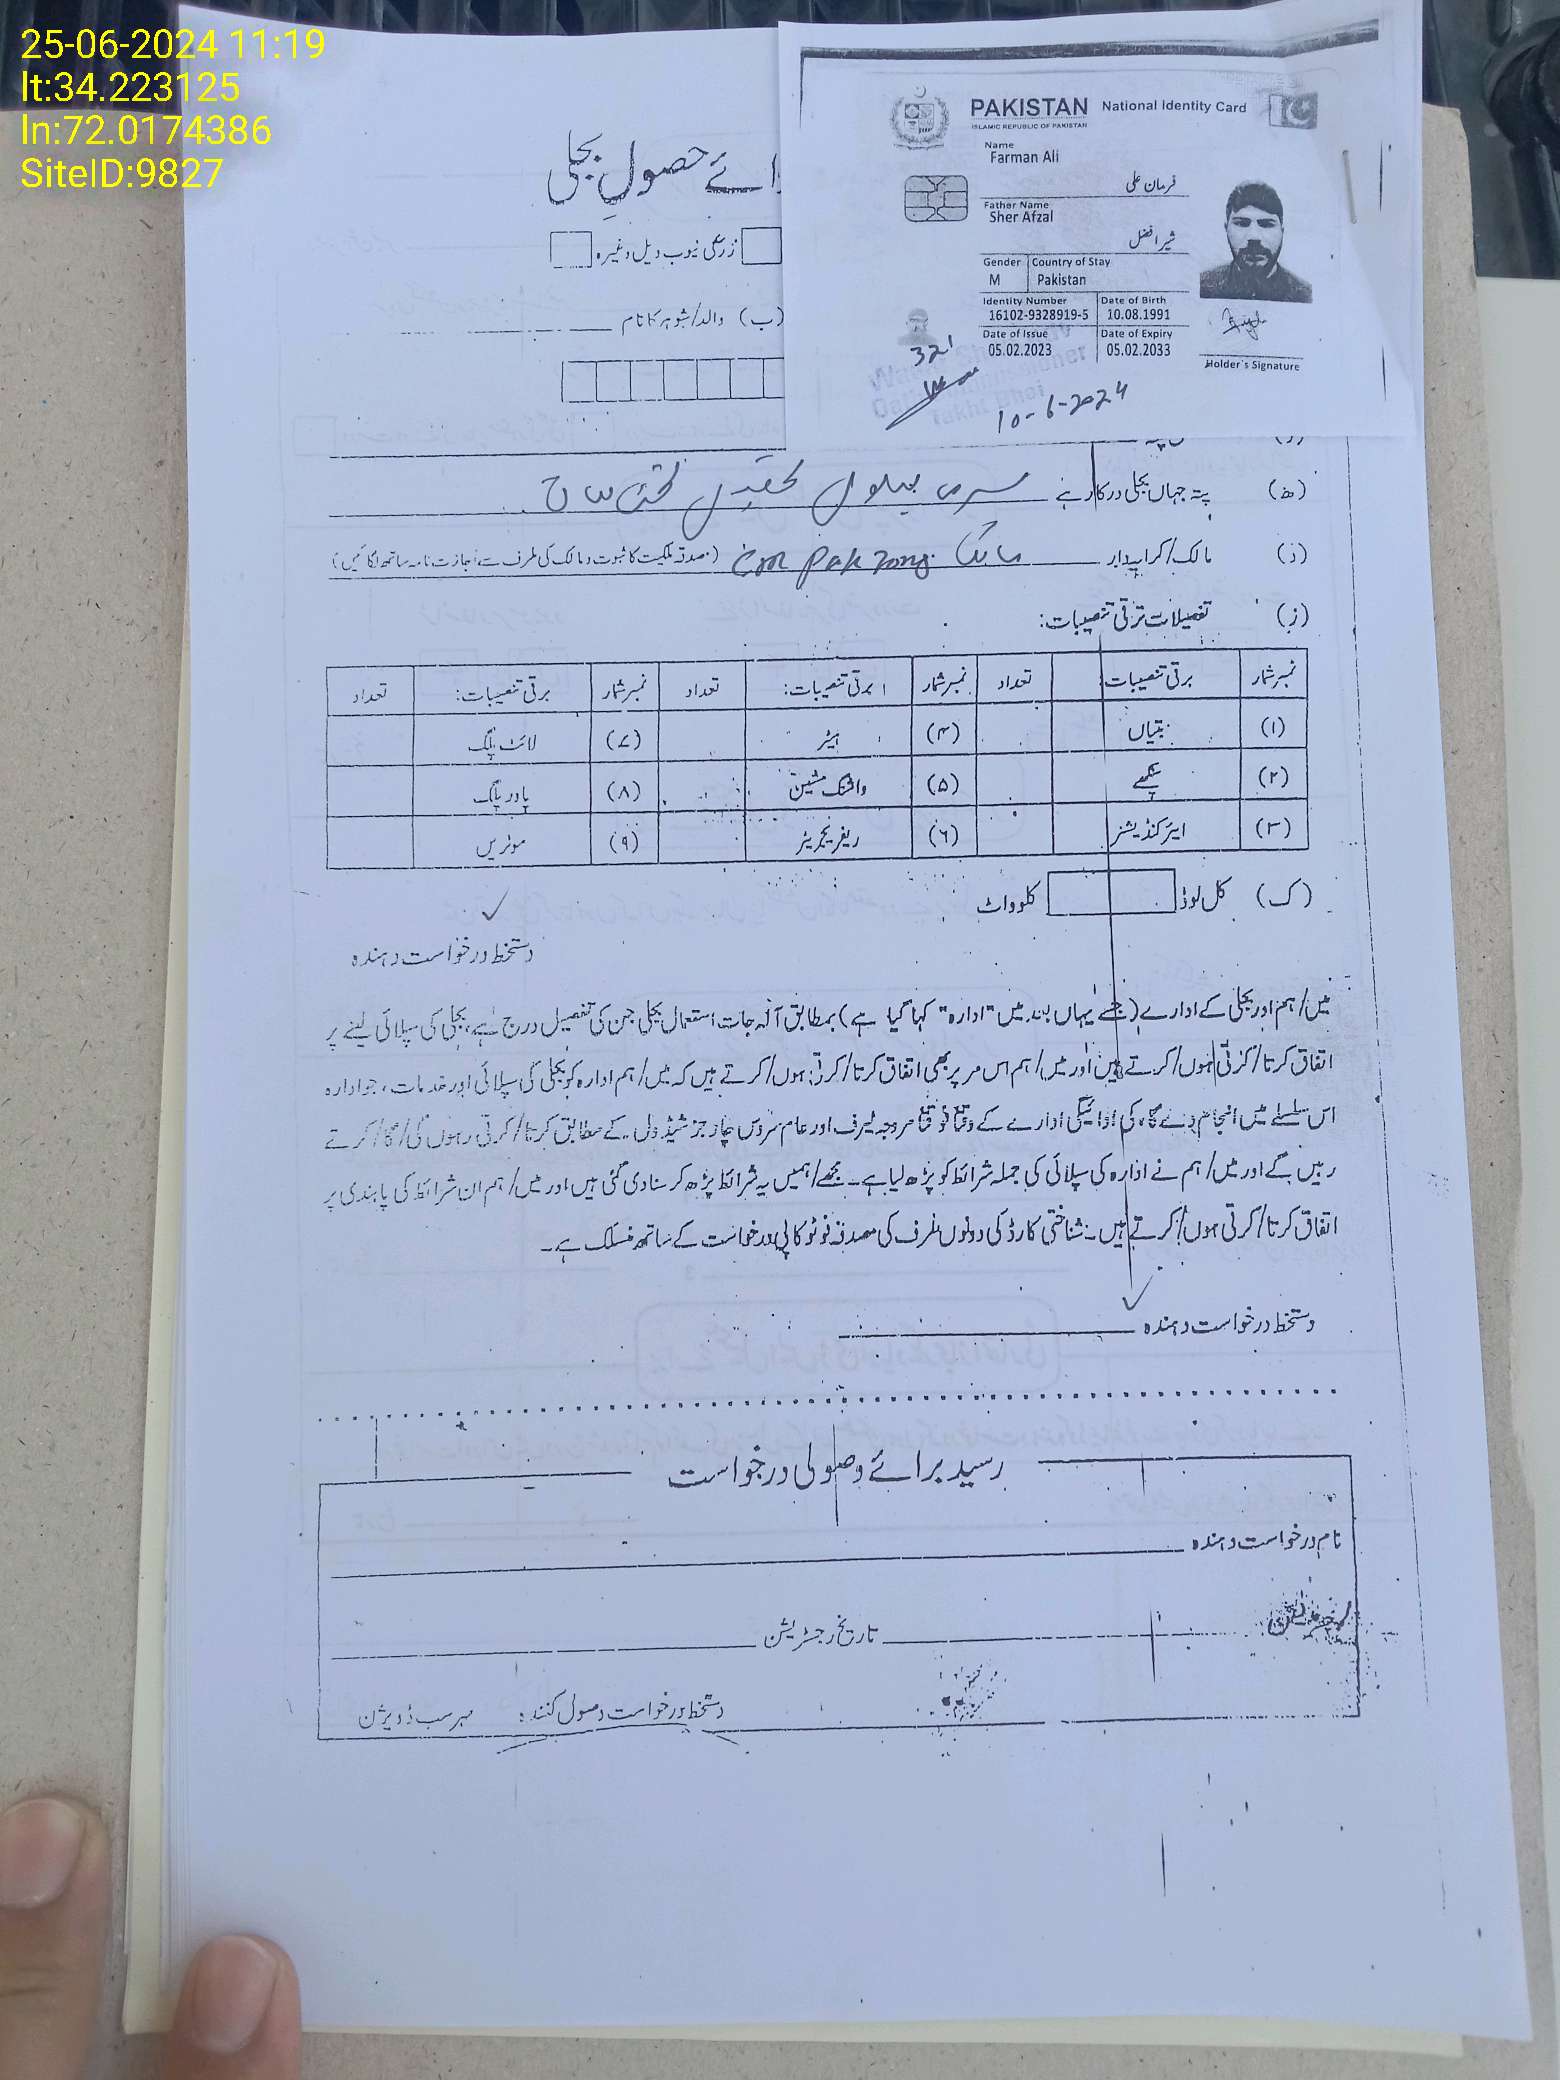 25-06-2024 11:19
lt:34.223125
ln:72.0174386
SiteID:9827
PAKISTAN National Identity Card
ISLAMIC REPUBLIC OF PAKISTAN
Name
Farman Ali
فرمان علی
Father Name
Sher Afzal
شیر افضل
Gender Country of Stay
M Pakistan
Identity Number Date of Birth
16102-9328919-5 10.08.1991
Date of Issue Date of Expiry
05.02.2023 05.02.2033
Holder's Signature
321
10-6-2024
ائے حصولِ بجلی
زرعی ٹیوب ویل وغیرہ
(ب) والد/شوہر کا نام
(ھ) پتہ جہاں بجلی درکار ہے سری بہلول تحصیل تخت
(ذ) مالک/کرایہ دار (مصدقہ ملکیت کا ثبوت و مالک کی طرف سے اجازت نامہ ساتھ لگائیں)
(ز) تفصیلات برقی تنصیبات:
نمبر شمار برقی تنصیبات: تعداد نمبر شمار برقی تنصیبات: تعداد نمبر شمار برقی تنصیبات: تعداد
(۱) بتیاں (۴) ہیٹر (۷) لائٹ پلگ
(۲) پنکھے (۵) واشنگ مشین (۸) پاور پلگ
(۳) ایئر کنڈیشنر (۶) ریفریجریٹر (۹) موٹریں
(ک) کل لوڈ کلو واٹ
دستخط درخواست دہندہ
میں/ہم اور بجلی کے ادارے (جسے یہاں بعد میں "ادارہ" کہا گیا ہے) بمطابق آلہ جات استعمال بجلی جن کی تفصیل درج ہے، بجلی کی سپلائی لینے پر
اتفاق کرتا/کرتی ہوں/کرتے ہیں اور میں/ہم اس امر پر بھی اتفاق کرتا/کرتی ہوں/کرتے ہیں کہ میں/ہم ادارہ کو بجلی کی سپلائی اور خدمات، جو ادارہ
اس سلسلے میں انجام دے گا، کی ادائیگی ادارے کے وقتاً فوقتاً مروجہ ٹیرف اور عام سروس چارجز شیڈول کے مطابق کرتا/کرتی رہوں گی/گا/کرتے
رہیں گے اور میں/ہم نے ادارہ کی سپلائی کی جملہ شرائط کو پڑھ لیا ہے۔ مجھے/ہمیں یہ شرائط پڑھ کر سنا دی گئی ہیں اور میں/ہم ان شرائط کی پابندی پر
اتفاق کرتا/کرتی ہوں/کرتے ہیں۔ شناختی کارڈ کی دونوں طرف کی مصدقہ فوٹو کاپی درخواست کے ساتھ منسلک ہے۔
دستخط درخواست دہندہ
رسید برائے وصولی درخواست
نام درخواست دہندہ
تاریخ رجسٹریشن
دستخط درخواست وصول کنندہ مہر سب ڈویژن